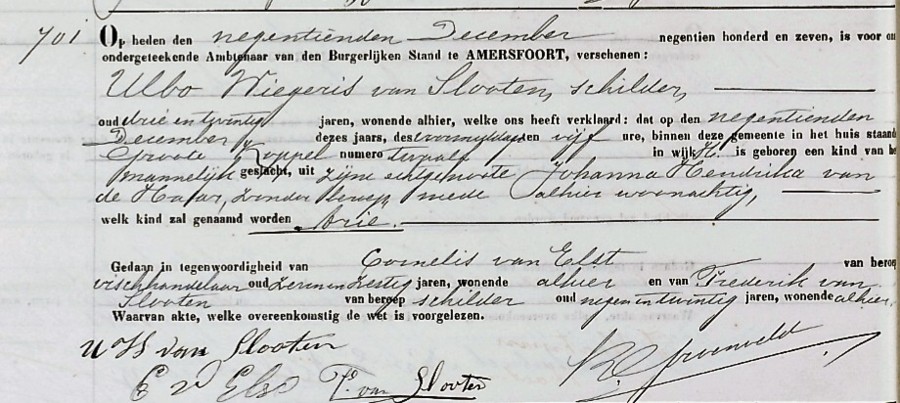 701 Op heden den negentienden December negentien honderd en zeven, is voor on
ondergeteekende Ambtenaar van den Burgerlijken Stand te AMERSFOORT, verschenen:
Ulbo Wiegeris van Slooten, schilder,
oud drie en twintig jaren, wonende alhier, welke ons heeft verklaard: dat op den negentienden
December dezes jaars, des voormiddags ten vijf ure, binnen deze gemeente in het huis staand
Groote Koppel numero twaalf in wijk is geboren een kind van he
mannelijk geslacht, uit zijne echtgenoote Johanna Hendrika van
de Haar, zonder beroep, mede alhier woonachtig,
welk kind zal genaamd worden Arie.
Gedaan in tegenwoordigheid van Cornelis van Elst van beroep
vischhandelaar oud zeven en zestig jaren, wonende alhier en van Frederik van
Slooten van beroep schilder oud negen en twintig jaren, wonende alhier.
Waarvan akte, welke overeenkomstig de wet is voorgelezen.
U W van Slooten
C v Elst F. van Slooten